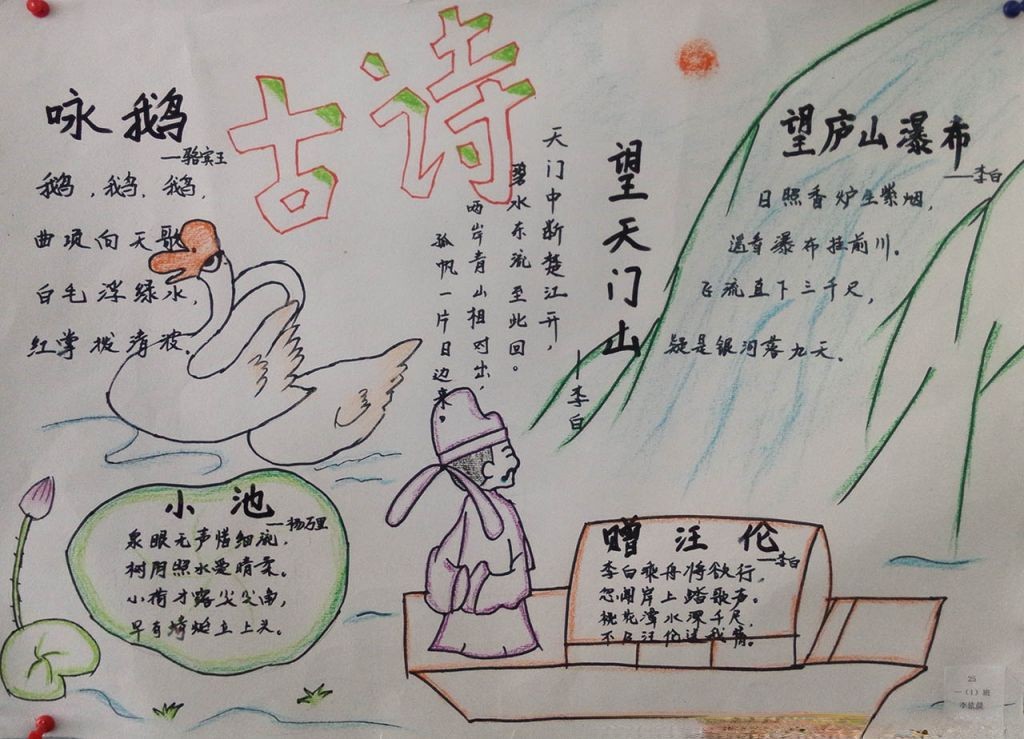 古诗
咏鹅
—骆宾王
鹅,鹅,鹅,
曲项向天歌
白毛浮绿水,
红掌拨清波。
望天门山
—李白
天门中断楚江开,
碧水东流至此回。
两岸青山相对出,
孤帆一片日边来。
望庐山瀑布
—李白
日照香炉生紫烟,
遥看瀑布挂前川。
飞流直下三千尺,
疑是银河落九天。
小池
—杨万里
泉眼无声惜细流,
树阴照水爱晴柔。
小荷才露尖尖角,
早有蜻蜓立上头。
赠汪伦
—李白
李白乘舟将欲行,
忽闻岸上踏歌声。
桃花潭水深千尺,
不及汪伦送我情。
25
一(1)班